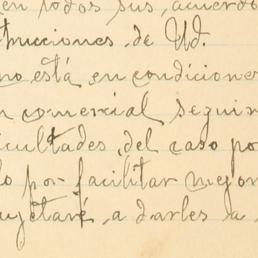 en todos sus, acuerdo
trucciones, de Ud.
no está, en condicione
n comercial seguir
icultades, del caso, po
lo por facilitar mejor
ujetaré, a darles a